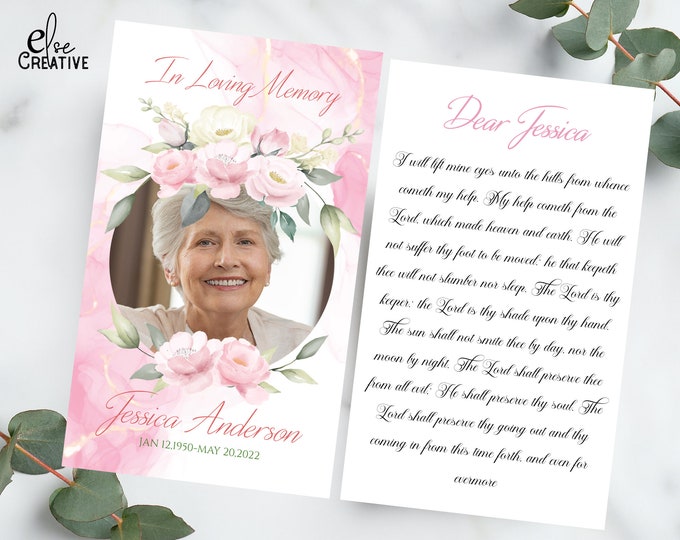 else
CREATIVE
In Loving Memory
Jessica Anderson
JAN 12,1950-MAY 20,2022
Dear Jessica
I will lift mine eyes unto the hills from whence
cometh my help. My help cometh from the
Lord, which made heaven and earth. He will
not suffer thy foot to be moved: he that keepeth
thee will not slumber nor sleep. The Lord is thy
keeper: the Lord is thy shade upon thy hand.
The sun shall not smite thee by day, nor the
moon by night. The Lord shall preserve thee
from all evil: He shall preserve thy soul. The
Lord shall preserve thy going out and thy
coming in from this time forth, and even for
evermore